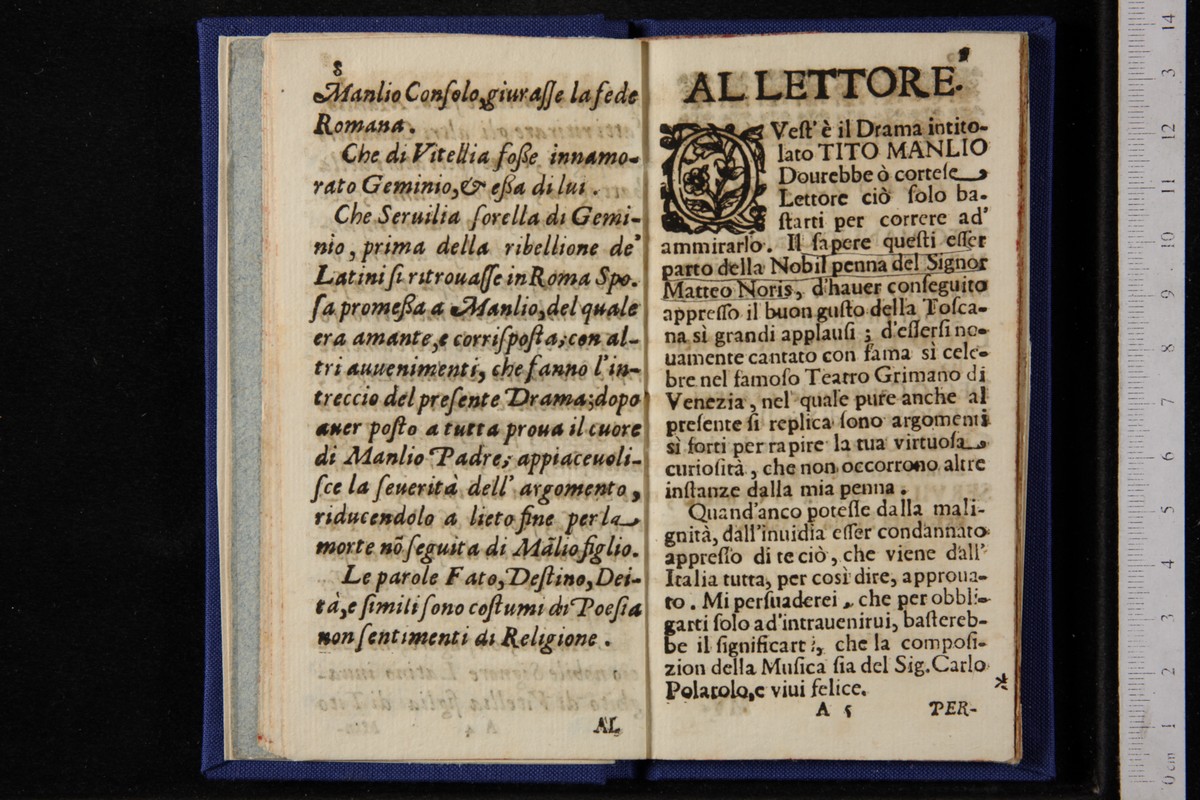 8
Manlio Conſolo, giuraſſe la fede
Romana.
Che di Vitellia foſſe innamo-
rato Geminio, & eſſa di lui.
Che Seruilia ſorella di Gemi-
nio, prima della ribellione de'
Latini ſi ritrouaſſe in Roma Spo-
ſa promeſſa a Manlio, del quale
era amante, e corriſpoſta; con al-
tri auuenimenti, che fanno l'in-
treccio del preſente Drama; dopo
auer poſto a tutta proua il cuore
di Manlio Padre; appiaceuoli-
ſce la ſeuerità dell' argomento,
riducendolo a lieto fine per la
morte nõ ſeguita di Mãlio figlio.
Le parole Fato, Deſtino, Dei-
tà, e ſimili ſono coſtumi di Poeſia
non ſentimenti di Religione.
AL
9
AL LETTORE.
QVeſt' è il Drama intito-
lato TITO MANLIO
Dourebbe ò corteſe
Lettore ciò ſolo ba-
ſtarti per correre ad'
ammirarlo. Il ſapere queſti eſſer
parto della Nobil penna del Signor
Matteo Noris, d'hauer conſeguito
appreſſo il buon guſto della Toſca-
na sì grandi applauſi; d'eſſerſi no-
uamente cantato con fama sì cele-
bre nel famoſo Teatro Grimano di
Venezia, nel quale pure anche al
preſente ſi replica ſono argomenti
sì forti per rapire la tua virtuoſa
curioſità, che non occorrono altre
inſtanze dalla mia penna.
Quand'anco poteſſe dalla mali-
gnità, dall'inuidia eſſer condannato
appreſſo di te ciò, che viene dall'
Italia tutta, per così dire, approua-
to. Mi perſuaderei, che per obbli-
garti ſolo ad'intrauenirui, baſtereb-
be il ſignificarti, che la compoſi-
zion della Muſica ſia del Sig. Carlo
Polarolo, e viui felice.
A 5 PER-
0 cm 1 2 3 4 5 6 7 8 9 10 11 12 3 14